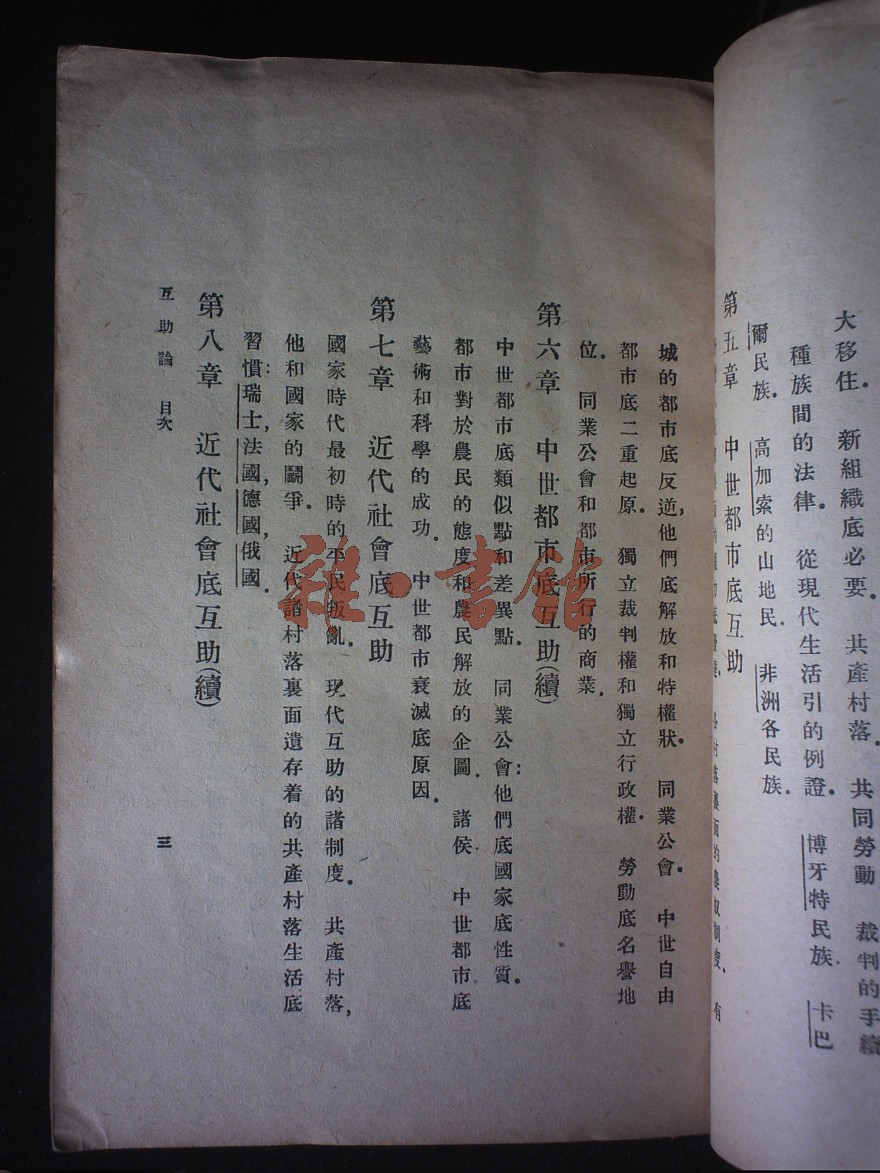 大移住．　新組織底必要．　共產村落．　共同勞動　裁判的手續
種族間的法律．　從現代生活引的例證．　博牙特民族．　卡巴
爾民族．　高加索的山地民．　非洲各民族．
第五章　中世都市底互助
城的都市底反逆，他們底解放和特權狀．　同業公會．　中世自由
都市底二重起原．　獨立裁判權和獨立行政權．　勞動底名譽地
位．　同業公會和都市所行的商業．
第六章　中世都市底互助（續）
中世都市底類似點和差異點．　同業公會：他們底國家底性質．
都市對於農民的態度和農民解放的企圖．　諸侯．　中世都市底
藝術和科學的成功．　中世都市衰滅底原因．
第七章　近代社會底互助
國家時代最初時的平民叛亂．　現代互助的諸制度．　共產村落，
他和國家的鬭爭．　近代諸村落裏面遺存着的共產村落生活底
習慣：瑞士，法國，德國，俄國．
第八章　近代社會底互助（續）
互助論　目次
三
雜·書館